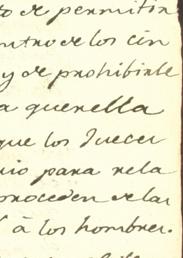 to de permitir
entro de los cin
y de prohibirle
a querella
que los Jueces
uio para rela
proceden de las
à los hombres.